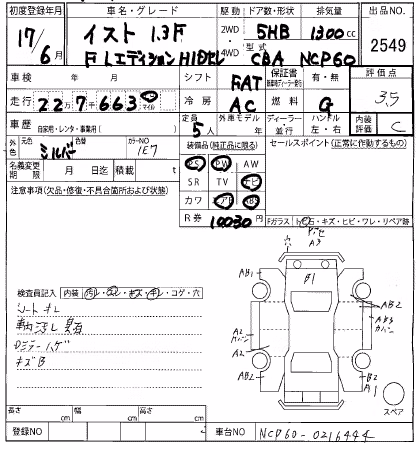 初度登録年月 車名・グレード 駆動 ドア数/形状 排気量 出品NO.
17/6月 イスト 1.3F 2WD 5HB 1300cc 2549
F Lエディション HIDセレ 4WD 型式 CBA NCP60
車検 年 月 シフト FAT 保証書 有・無 評価点
走行 22万7千663 km マイル 冷房 AC 燃料 G 3.5
車歴 自家用・レンタ・事業用( ) 定員 5人 外車モデル 年 ディーラー 並行 ハンドル 左・右 内装評価 C
外色 元色 シルバー 色替 カラーNO 1E7 装備品(純正品に限る) セールスポイント(正常に作動するもの)
名義変更期限 月 日迄 積載 t PS PW AW
注意事項(欠品・修復・不具合箇所および状態) SR TV ナビ
カワ エアB ABS
R券 10030円 Fガラス トビ石・キズ・ヒビ・ワレ・リペア跡
A3
B1
AB1
AB1
AB2
AB3
カバン
A2
A2
AB2
B2
A1
スペア
検査員記入 内装 汚レ・スレ・キズ・キレ・コゲ・穴
シートキレ
車内汚レ 臭
キズB
長さ cm 幅 cm 高さ cm
登録NO 車台NO NCP60-0216444